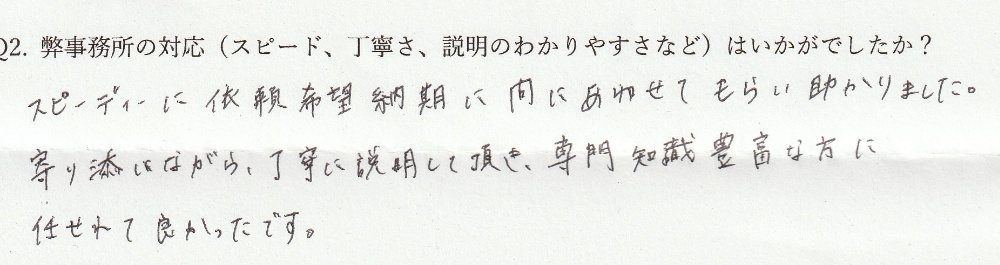 Q2. 弊事務所の対応（スピード、丁寧さ、説明のわかりやすさなど）はいかがでしたか？
スピーディーに依頼希望納期に間にあわせてもらい助かりました。
寄り添いながら、丁寧に説明して頂き、専門知識豊富な方に
任せれて良かったです。